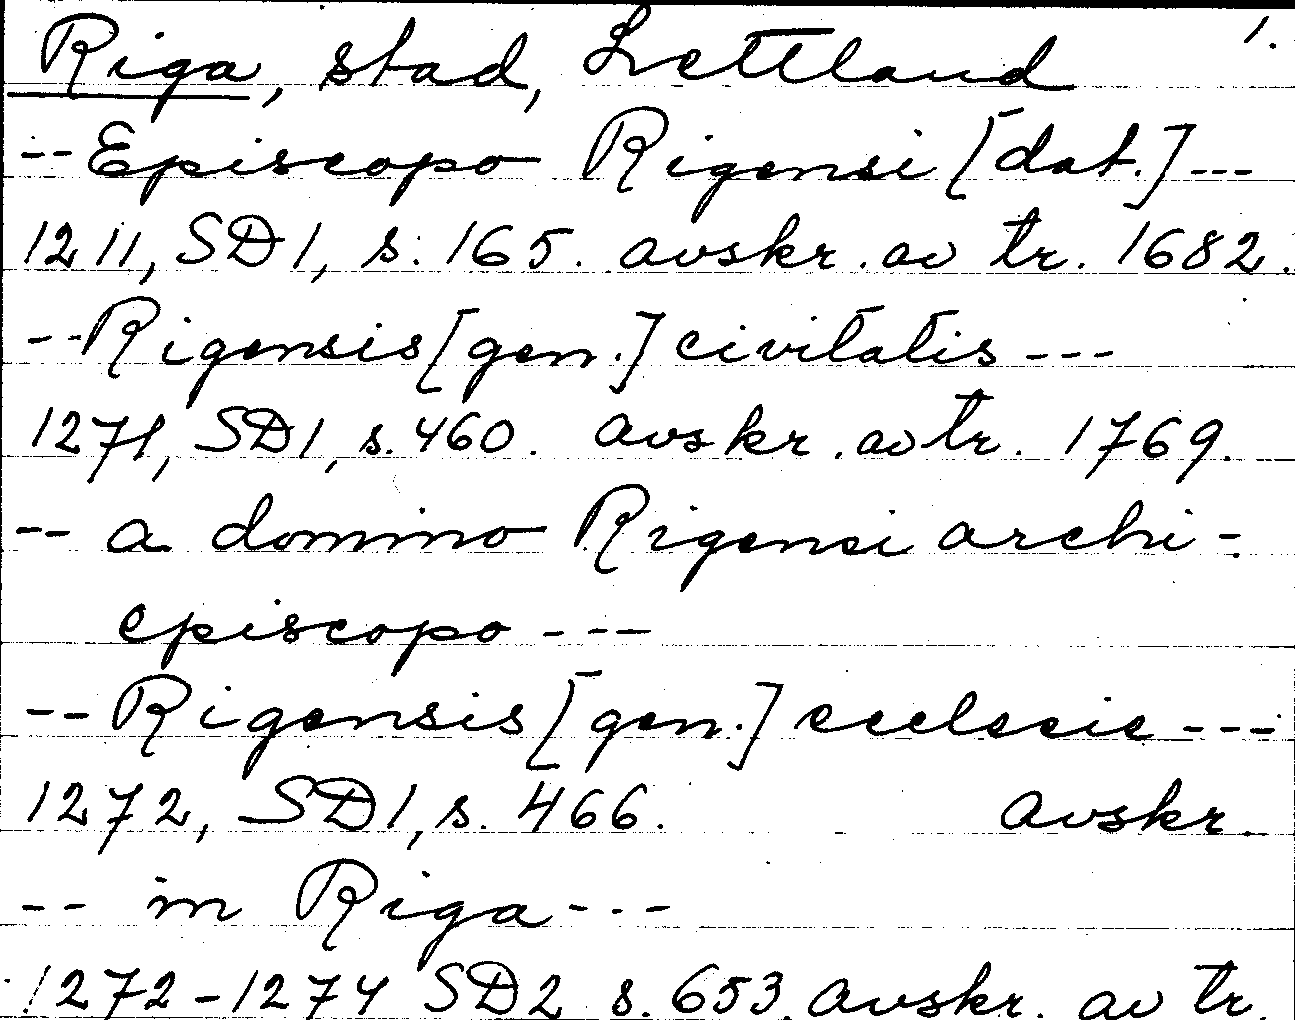 Riga, stad, Lettland 1.
-- Episcopo Rigensi [dat.] ---
1211, SD1, s. 165. avskr. av tr. 1682.
-- Rigensis [gen.] civitatis ---
1271, SD1, s. 460. avskr. av tr. 1769.
-- a domino Rigensi archi-
episcopo ---
-- Rigensis [gen.] ecclesie ---
1272, SD1, s. 466. avskr.
-- in Riga ---
1272-1274 SD2 s. 653. avskr. av tr.